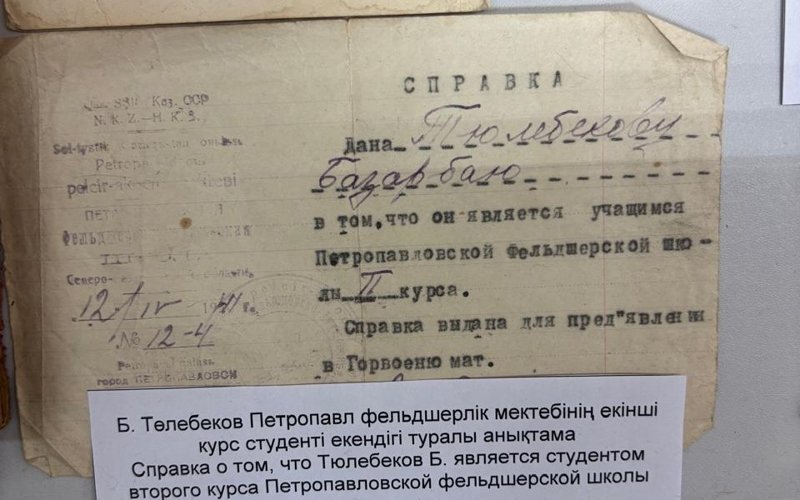 Қаз. ССР
N. K. Z. — Н. К. З.
Petropavl
ПЕТ
Фельдше
Северо-
12/IV 1941 г.
№ 12-4
город ПЕТРОПАВЛОВСК
СПРАВКА
Дана Тюлебекову
Базарбаю
в том, что он является учащимся
Петропавловской Фельдшерской шко-
лы II курса.
Справка выдана для пред"явлении
в Горвоеню мат.
Б. Төлебеков Петропавл фельдшерлік мектебінің екінші
курс студенті екендігі туралы анықтама
Справка о том, что Тюлебеков Б. является студентом
второго курса Петропавловской фельдшерской школы